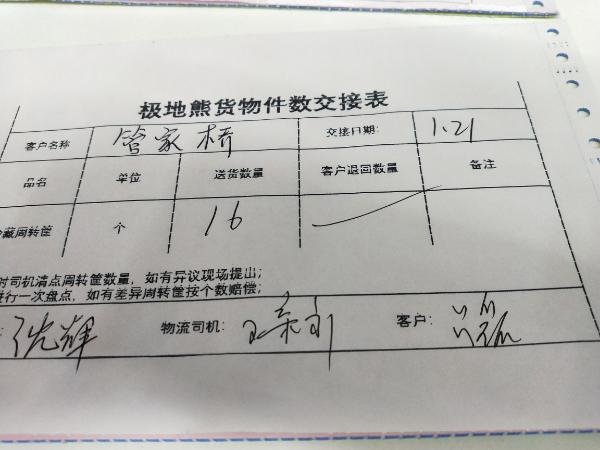 极地熊货物件数交接表
客户名称 管家桥 交接日期: 1.21
品名 单位 送货数量 客户退回数量 备注
藏周转筐 个 16
时司机清点周转筐数量，如有异议现场提出；
行一次盘点，如有差异周转筐按个数赔偿；
沈辉 物流司机: 客户: